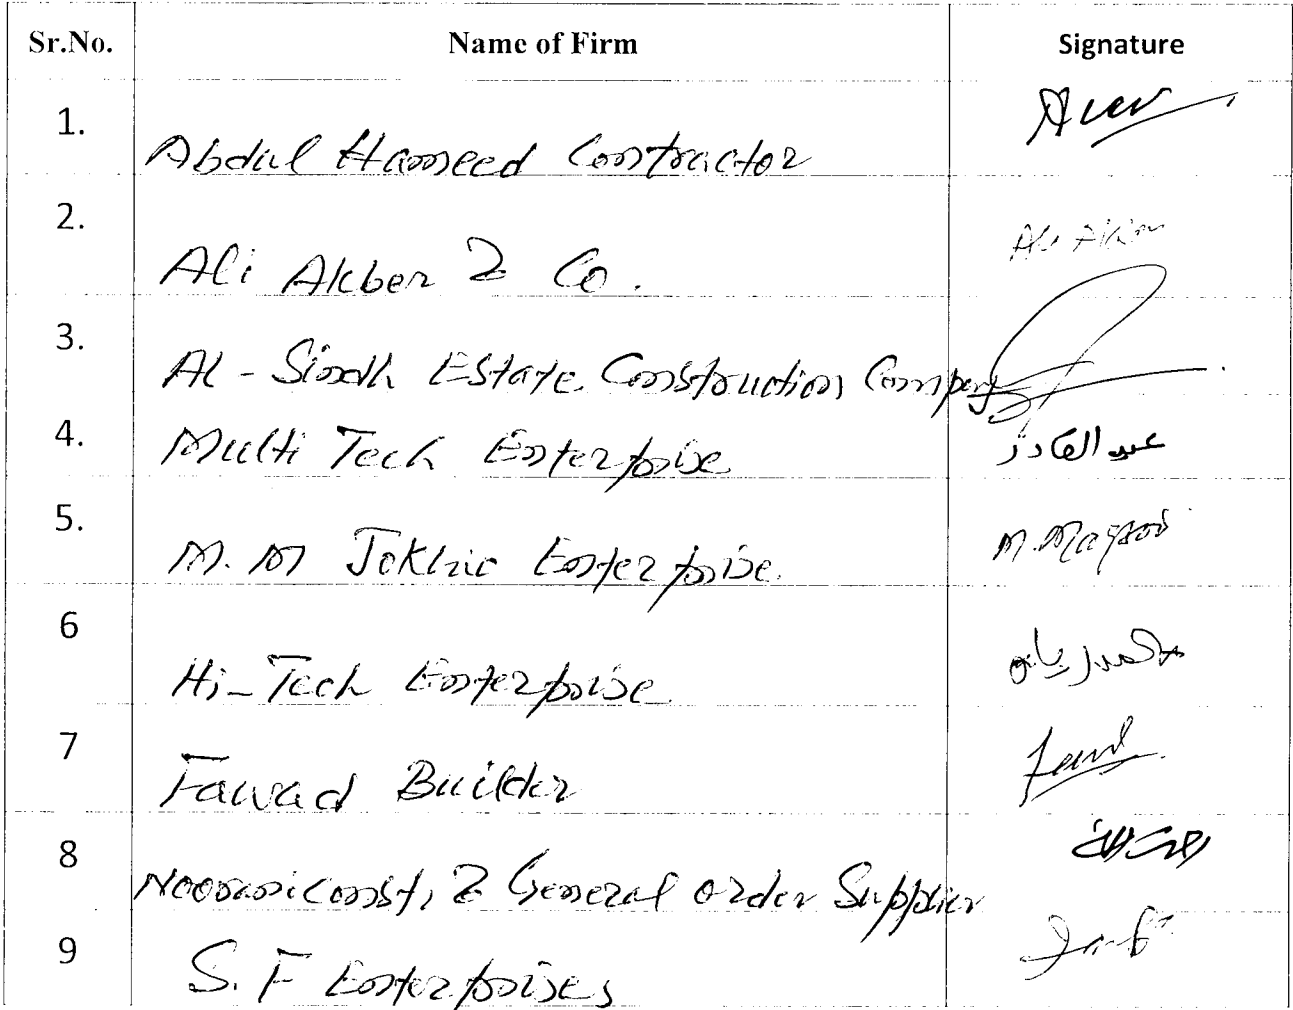 Sr.No. Name of Firm Signature
1. Abdul Hameed Contractor
2. Ali Akber & Co. Ali Akber
3. Al-Sindh Estate Construction Company
4. Multi Tech Enterprise عبدالقادر
5. M.M Jokhio Enterprise M.
6 Hi-Tech Enterprise
7 Fawad Builder
8 Noorani Const, & General order Supplier
9 S.F Enterprises